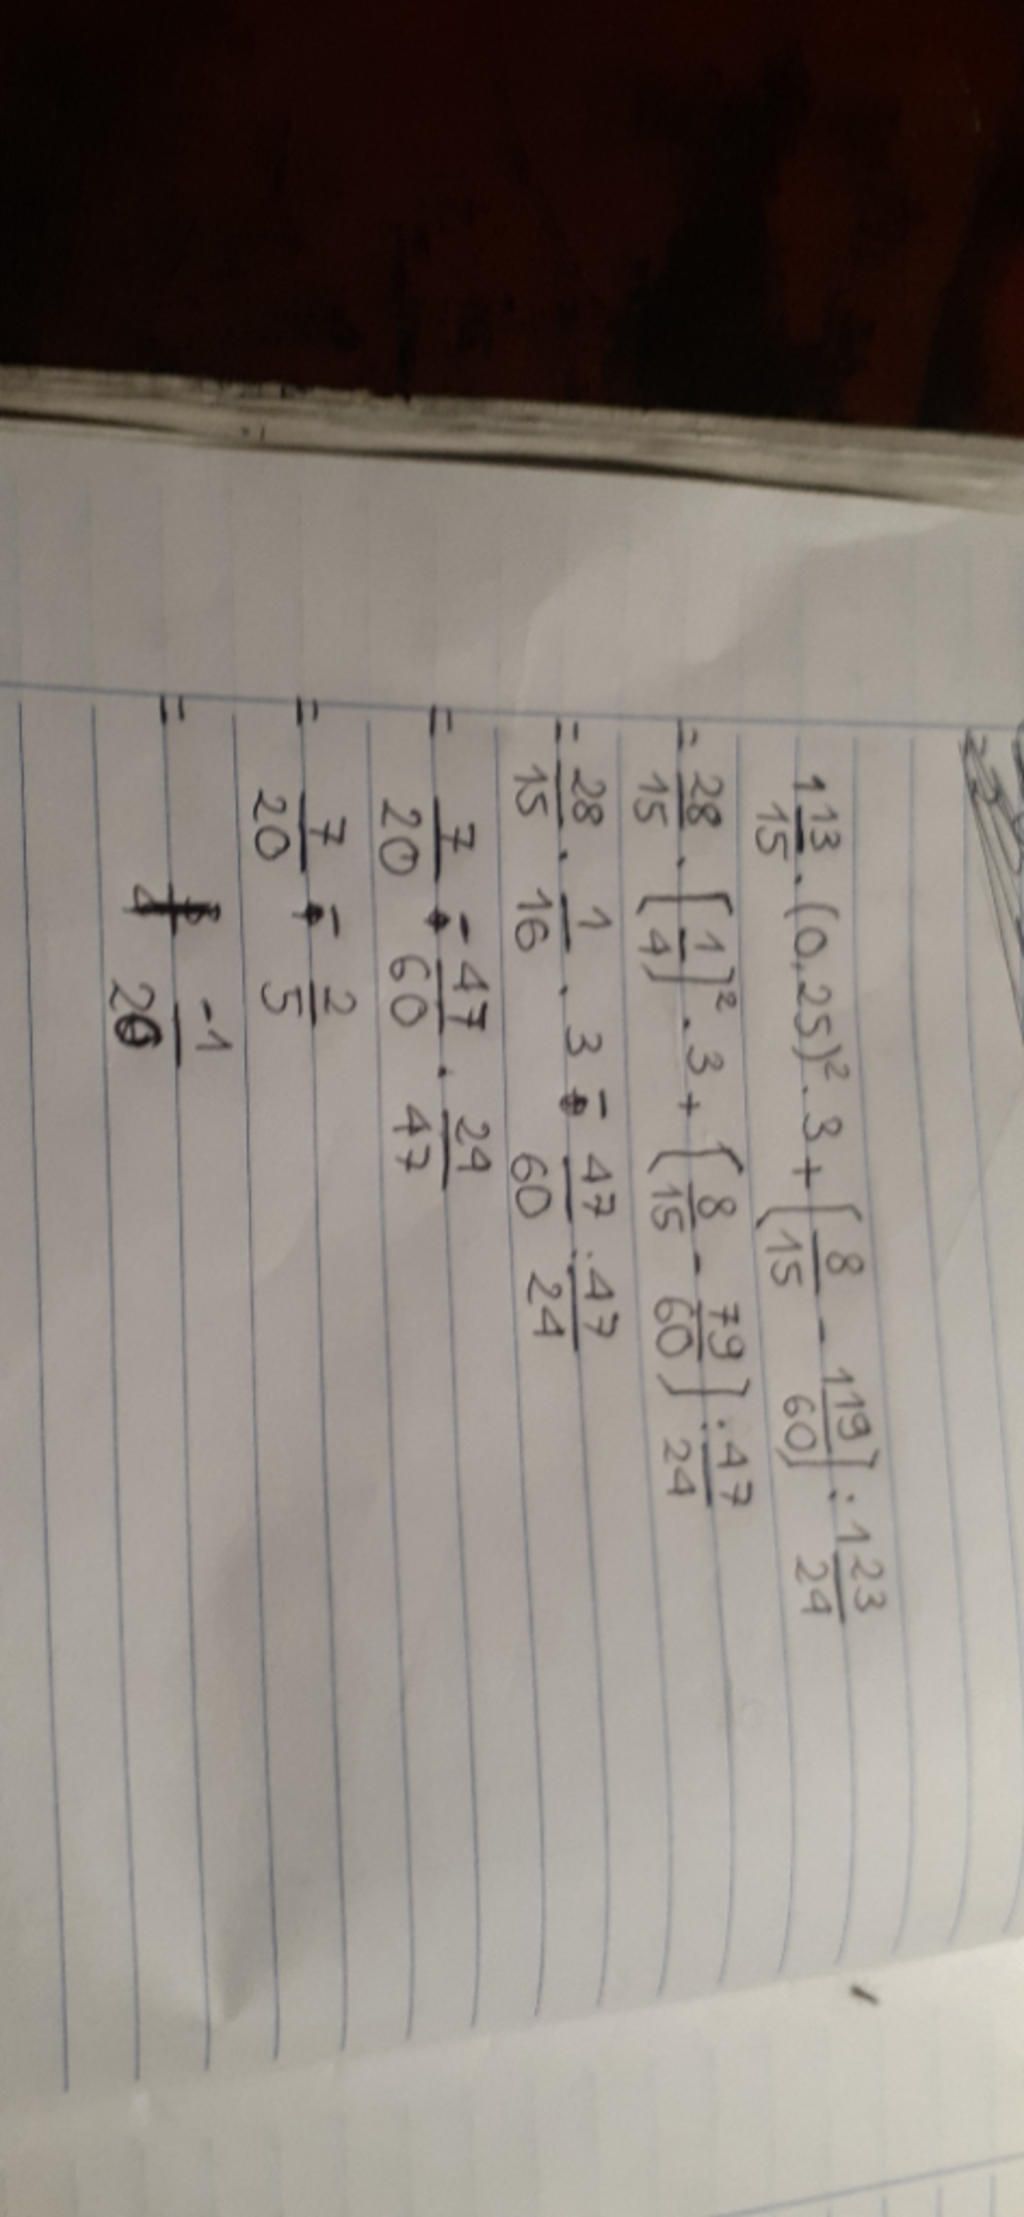 1 13/15 . (0,25)² . 3 + (8/15 - 1 19/60) : 1 23/24
= 28/15 . (1/4)² . 3 + (8/15 - 79/60) : 47/24
= 28/15 . 1/16 . 3 - 47/60 : 47/24
= 7/20 - 47/60 . 24/47
= 7/20 - 2/5
= -1/20